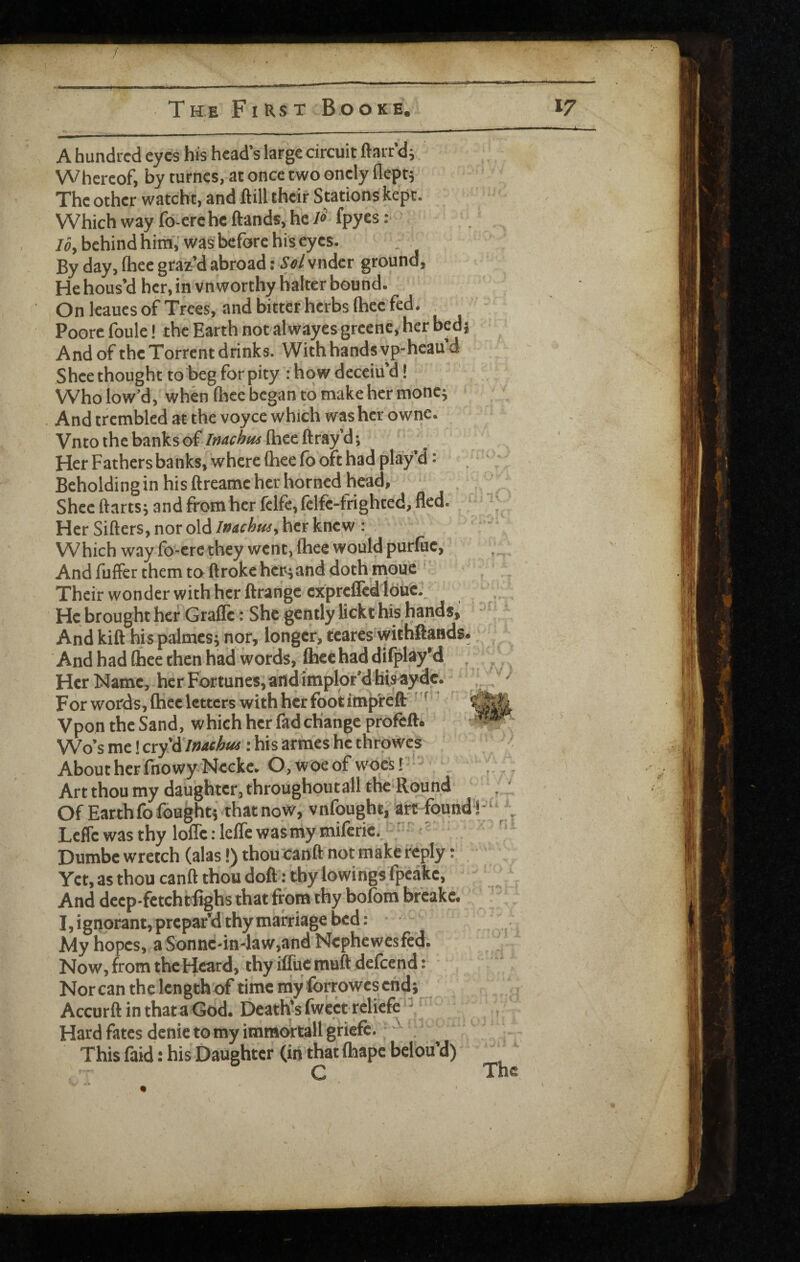 THE FIRST BOOKE. 17
A hundred eyes his head's large circuit ſtarr'd;
Whereof, by turnes, at once two onely ſlept;
The other watcht, and ſtill their Stations kept.
Which way ſo-ere he ſtands, he Iö ſpyes:
Iö, behind him, was before his eyes.
By day, ſhee graz'd abroad: Sol vnder ground,
He hous'd her, in vnworthy halter bound.
On leaues of Trees, and bitter herbs ſhee fed.
Poore ſoule! the Earth not alwayes greene, her bed;
And of the Torrent drinks. With hands vp-heau'd
Shee thought to beg for pity : how deceiu'd!
Who low'd, when ſhee began to make her mone;
And trembled at the voyce which was her owne.
Vnto the banks of Inachus ſhee ſtray'd;
Her Fathers banks, where ſhee ſo oft had play'd:
Beholding in his ſtreame her horned head,
Shee ſtarts; and from her ſelfe, ſelfe-frighted, fled.
Her Siſters, nor old Inachus, her knew:
Which way ſo-ere they went, ſhee would purſue,
And ſuffer them to ſtroke her; and doth moue
Their wonder with her ſtrange expreſſed loue.
He brought her Graſſe: She gently lickt his hands,
And kiſt his palmes; nor, longer, teares withſtands.
And had ſhee then had words, ſhee had diſplay'd
Her Name, her Fortunes, and implor'd his ayde.
For words, ſhee letters with her foot impreſt
Vpon the Sand, which her ſad change profeſt.
Wo's me! cry'd Inachus: his armes he throwes
About her ſnowy Necke. O, woe of woes!
Art thou my daughter, throughout all the Round
Of Earth ſo ſought; that now, vnſought, art found!
Leſſe was thy loſſe: leſſe was my miſerie.
Dumbe wretch (alas!) thou canſt not make reply:
Yet, as thou canſt thou doſt: thy lowings ſpeake,
And deep-fetcht ſighs that from thy boſom breake.
I, ignorant, prepar'd thy marriage bed:
My hopes, a Sonne-in-law, and Nephewes fed.
Now, from the Heard, thy iſſue muſt deſcend:
Nor can the length of time my ſorrowes end;
Accurſt in that a God. Death's ſweet reliefe
Hard fates denie to my immortall griefe.
This ſaid: his Daughter (in that ſhape belou'd)
C The